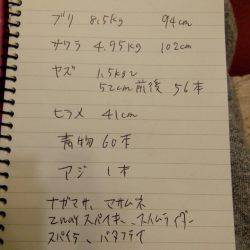 ブリ 8.5kg 94cm
サワラ 4.95kg 102cm
ヤズ 1.5kg〜
52cm前後 56本
ヒラメ 41cm
青物 60本
アジ 1本
ナガマサ、マサムネ
2wayスパイキー、スイムライダー
スパイラ、バタフライ